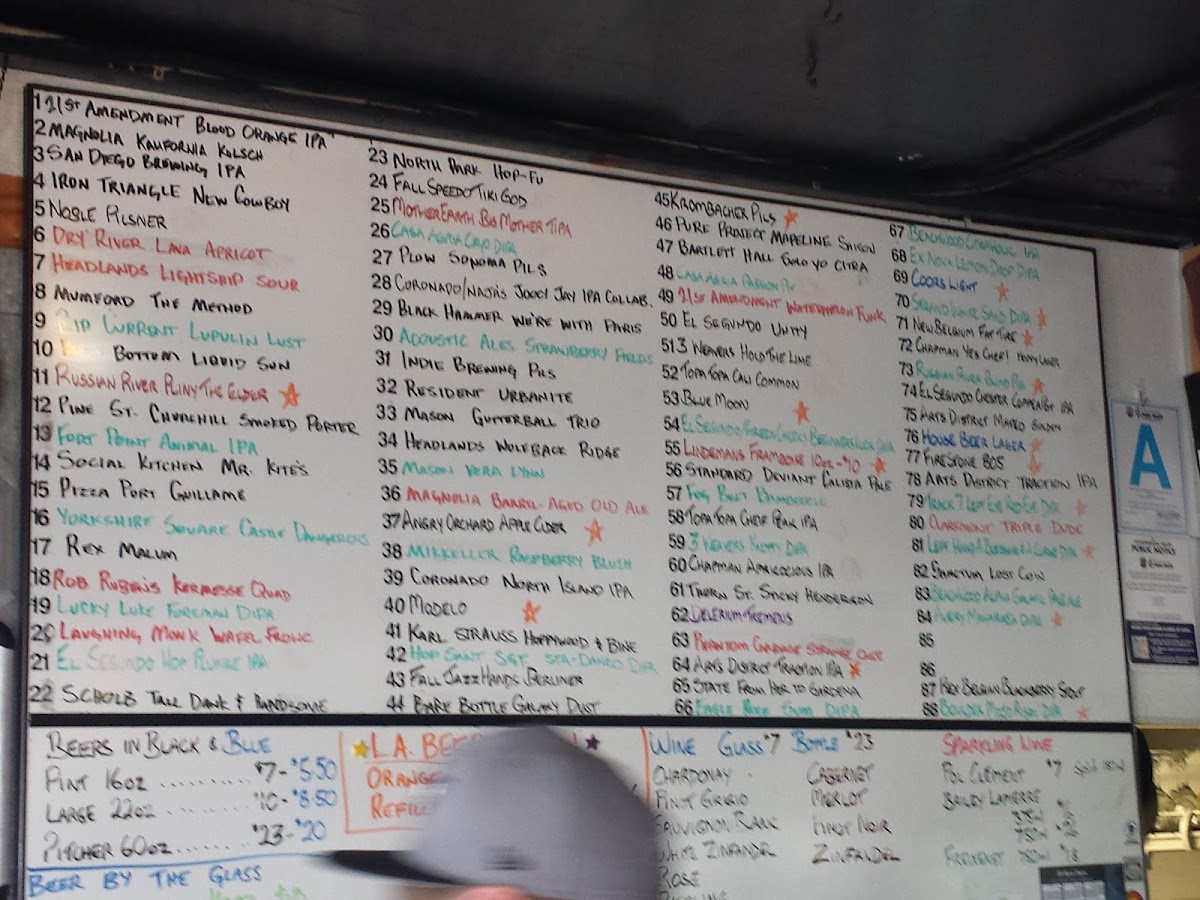 1 21ST AMENDMENT BLOOD ORANGE IPA
2 MAGNOLIA KALIFORNIA KOLSCH
3 SAN DIEGO BREWING IPA
4 IRON TRIANGLE NEW COWBOY
5 NOBLE PILSNER
6 DRY RIVER LAVA APRICOT
7 HEADLANDS LIGHTSHIP SOUR
8 MUMFORD THE METHOD
9 RIP CURRENT LUPULIN LUST
10 BOTTOM LIQUID SUN
11 RUSSIAN RIVER PLINY THE ELDER
12 PINE ST. CHURCHILL SMOKED PORTER
13 FORT POINT ANIMAL IPA
14 SOCIAL KITCHEN MR. KITE'S
15 PIZZA PORT GUILLAME
16 YORKSHIRE SQUARE CASTLE DANGEROUS
17 REX MALUM
18 ROB RUBENS KERMESSE QUAD
19 LUCKY LUKE FOREMAN DIPA
20 LAUGHING MONK
21 EL SEGUNDO HOP PLUNGE IPA
22 SCHOLB TALL DANK & HANDSOME
23 NORTH PARK HOP-FU
24 FALL SPEEDO TIKI GOD
25 MOTHER EARTH BIG MOTHER TIPA
26 CASA AGRIA DIPA
27 PLOW SONOMA PILS
28 CORONADO/NAJA'S JOOCY JAY IPA COLLAB.
29 BLACK HAMMER WE'RE WITH PARIS
30 ACOUSTIC ALES STRAWBERRY FIELDS
31 INDIE BREWING PILS
32 RESIDENT URBANITE
33 MASON GUTTERBALL TRIO
34 HEADLANDS WOLFBACK RIDGE
35 MASON VERA LYNN
36 MAGNOLIA BARREL-AGED OLD ALE
37 ANGRY ORCHARD APPLE CIDER
38 MIKKELLER RASPBERRY BLUSH
39 CORONADO NORTH ISLAND IPA
40 MODELO
41 KARL STRAUSS HOPPYWOOD & BINE
42 HOP SAINT SGT. STA-DANKO DIPA
43 FALL JAZZ HANDS BERLINER
44 BARE BOTTLE GALAXY DUST
45 KROMBACHER PILS
46 PURE PROJECT MAPELINE SAISON
47 BARTLETT HALL SOLO YO CITRA
48 CASA AGRIA PASSION
49 21ST AMENDMENT WATERMELON FUNK
50 EL SEGUNDO UNITY
51 3 WEAVERS HOLD THE LINE
52 TOPA TOPA CALI COMMON
53 BLUE MOON
54 EL SEGUNDO/GREEN CHEEK BEGINNERS LUCK DIPA
55 LINDEMANS FRAMBOISE 10OZ-$10
56 STANDARD DEVIANT CALISTA PALE
57 FOG BELT
58 TOPA TOPA CHIEF PEAK IPA
59 3 WEAVERS KNOTTY DIPA
60 CHAPMAN APRICOCIOUS IPA
61 THORN ST. STICKY HENDERSON
62 DELERIUM TREMENS
63 PHANTOM CARRIAGE STRANGE
64 ARTS DISTRICT TRACTION IPA
65 STATE FROM HER TO GARDENA
66 EAGLE ROCK DIPA
67 BEACHWOOD CITRAHOLIC IPA
68 EX NOVA LEMON DROP DIPA
69 COORS LIGHT
70 STRAND WHITE SAND DIPA
71 NEW BELGIUM FAT TIRE
72 CHAPMAN YES CHEF! HOPPY LAGER
73 RUSSIAN RIVER BLIND PIG
74 EL SEGUNDO CHESTER COPPERPOT IPA
75 ARTS DISTRICT MATEO
76 HOUSE BEER LAGER
77 FIRESTONE 805
78 ARTS DISTRICT TRACTION IPA
79 TRACK 7 LEFT EYE RED EYE DIPA
80 CLAREMONT TRIPLE DUDE
81 LEFT HAND DIPA
82 SANCTUM LOST COIN
83 BEACHWOOD PALE ALE
84 AVERY MAHARAJA DIPA
85
86
87 BELGIAN BLACKBERRY SOUR
88 BOULDER DIPA
BEERS IN BLACK & BLUE
PINT 16OZ .......... $7-$5.50
LARGE 22OZ ......... $10-$8.50
PITCHER 60OZ ....... $23-$20
BEER BY THE GLASS
L.A. BE
ORANGE
REFILL
WINE GLASS $7 BOTTLE $23
CHARDONAY CABERNET
PINOT GRIGIO MERLOT
SAUVIGNON BLANC PINOT NOIR
WHITE ZINFANDEL ZINFANDEL
ROSE
SPARKLING WINE
POL CLEMENT $7
BAILEY LAPIERRE
375ml
750ml
FREIXENET 750ml $18
A
PUBLIC NOTICE